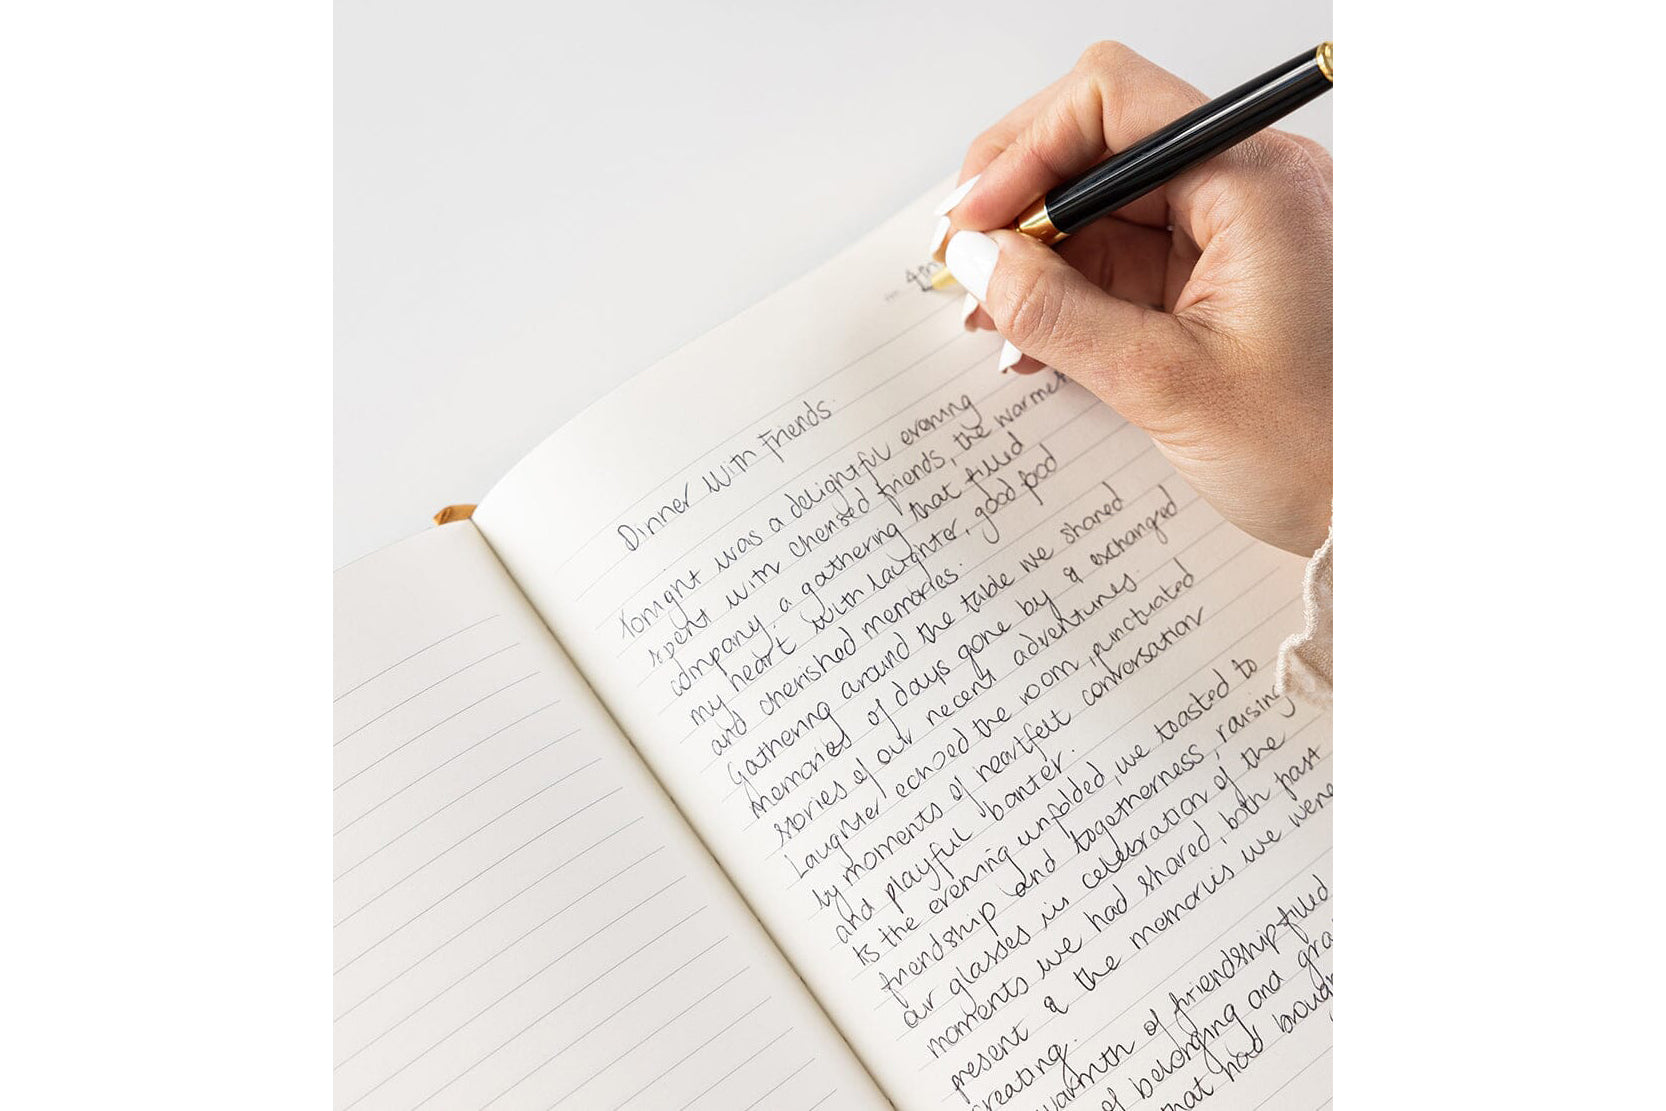 4m
Dinner With Friends.
Tonight was a delightful evening
spent with cherised friends, the warmeth
company, a gathering that filled
my heart with laughter, good food
and cherished memories.
Gathering around the table we shared
memories of days gone by & exchanged
stories of our recent adventures.
Laughter echoed the room, punctuated
by moments of heartfelt conversation
and playful banter.
As the evening unfolded, we toasted to
friendship and togetherness, raising
our glasses in celebration of the
moments we had shared, both past
present & the memories we were
creating.
warmth of friendship filled
of belonging and gra
that had brough